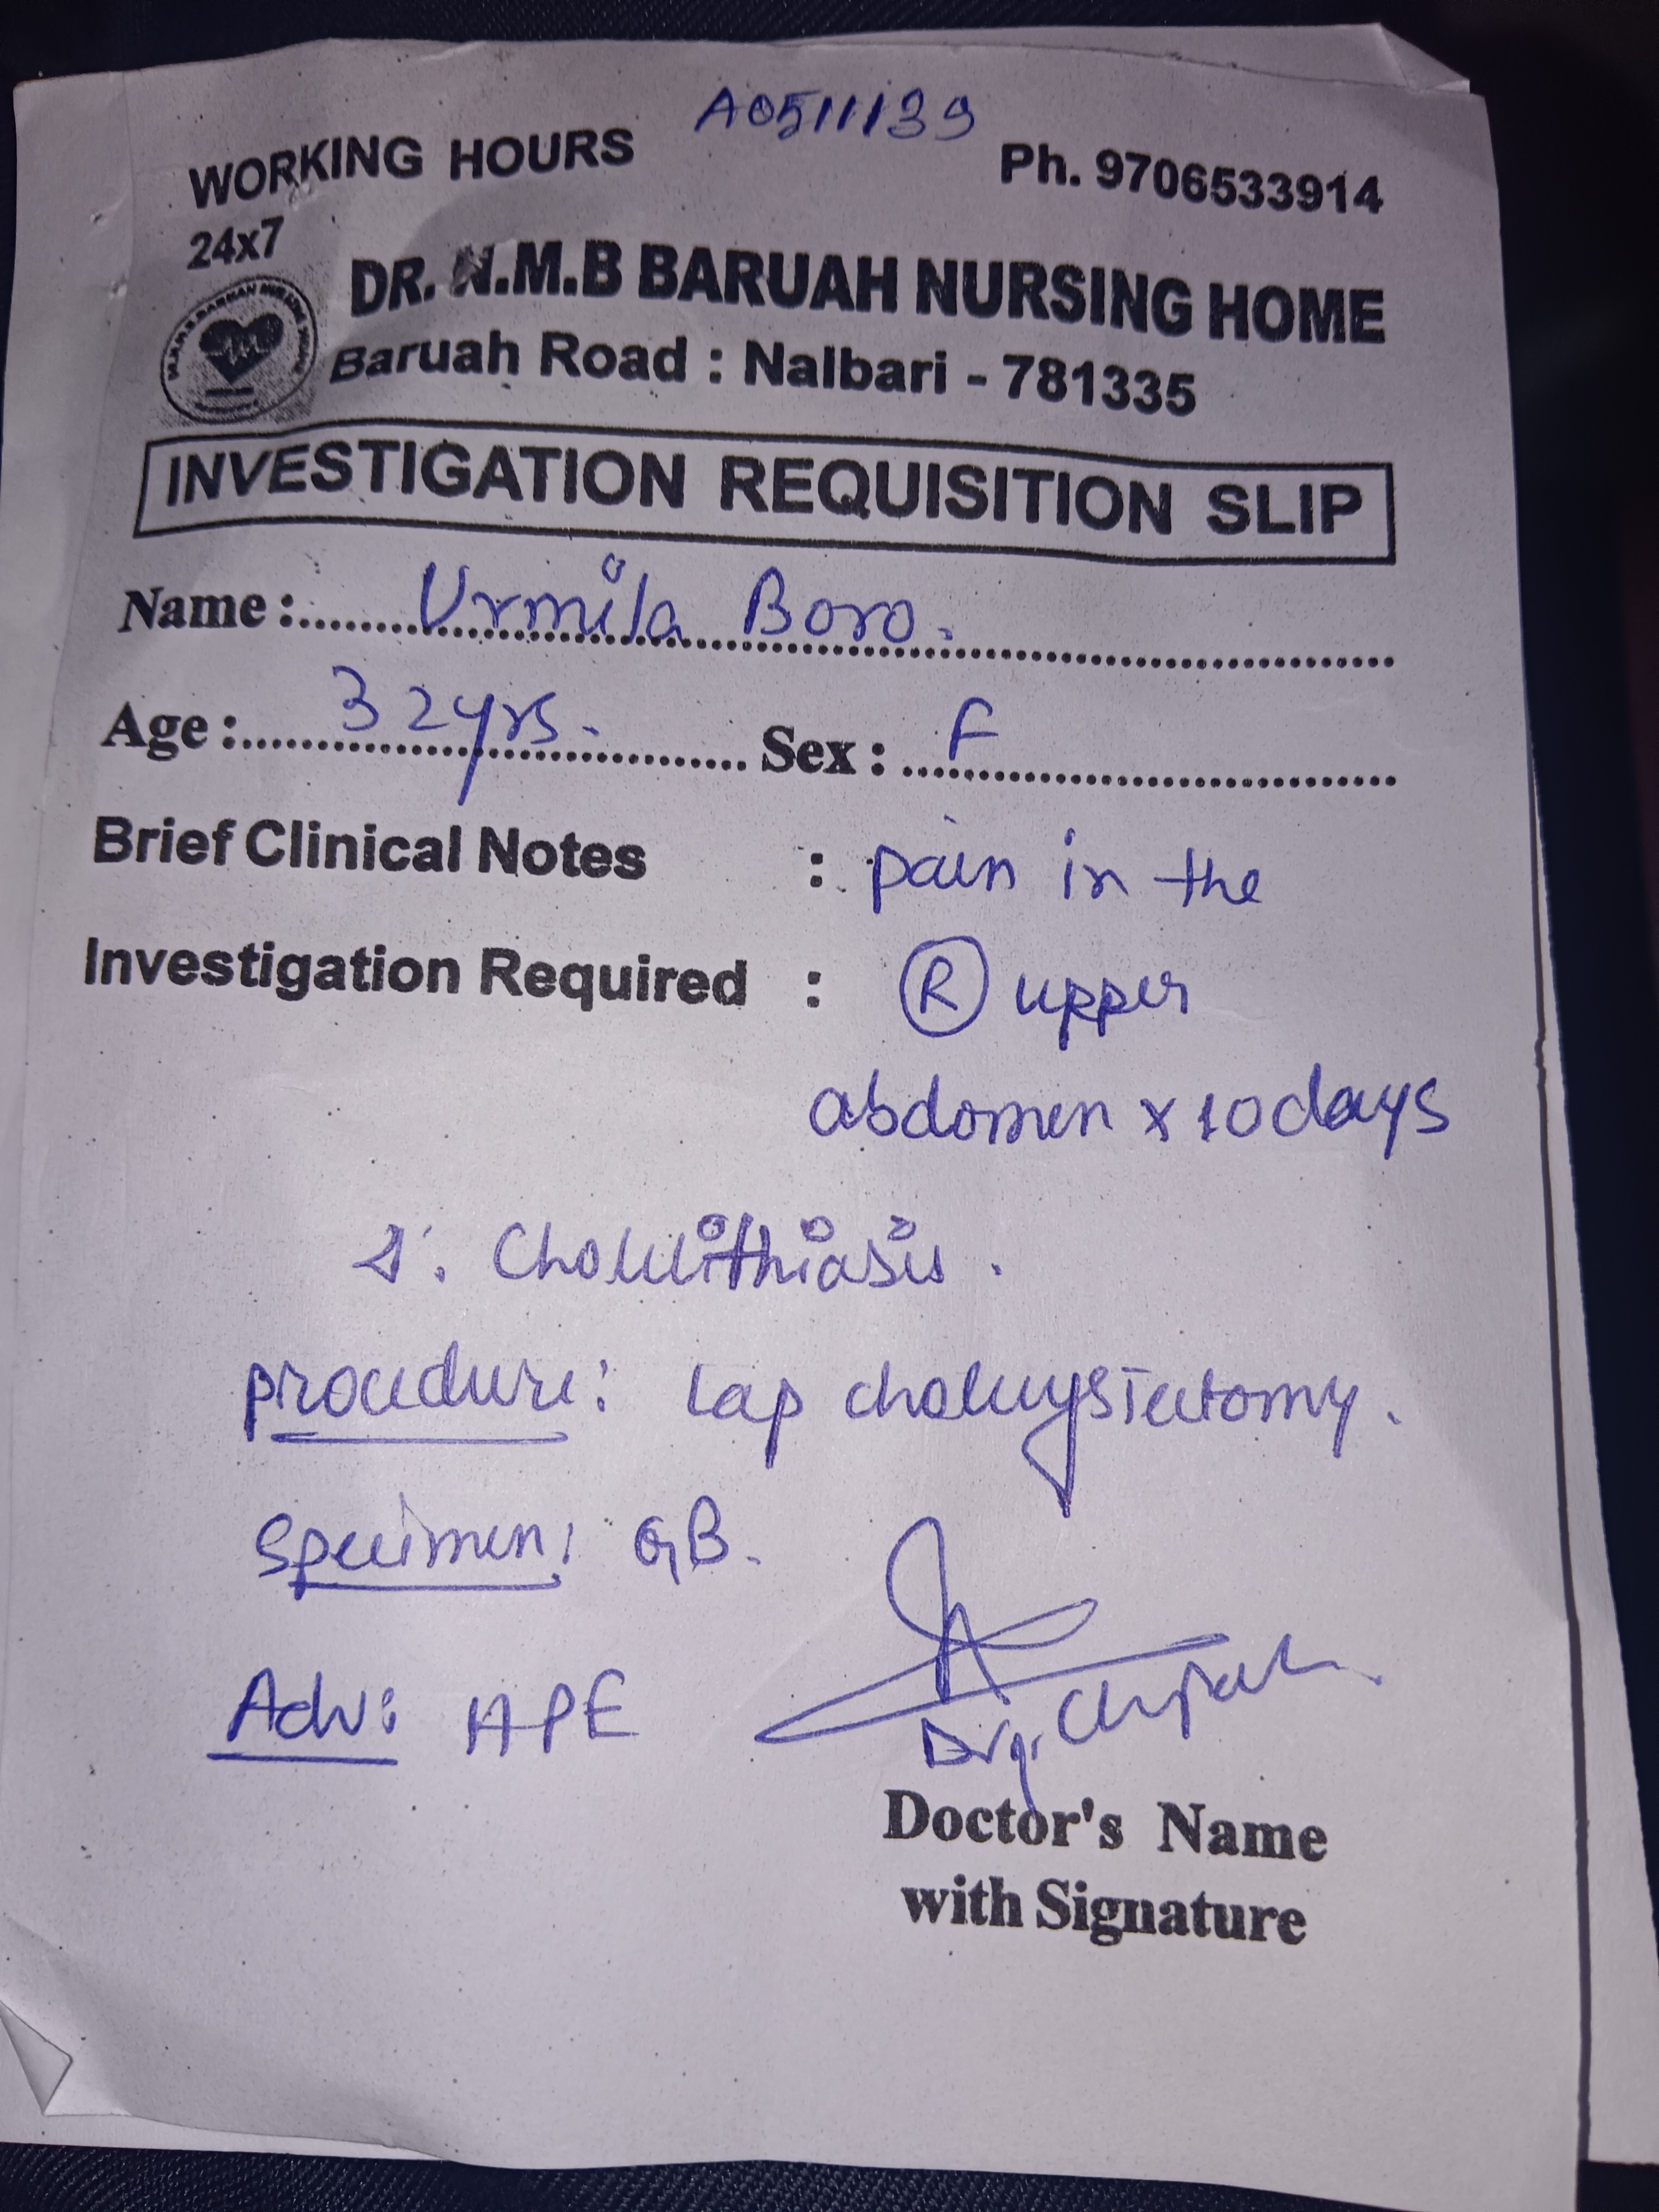 A0511139
WORKING HOURS
24x7
Ph. 9706533914
DR. N.M.B BARUAH NURSING HOME
Baruah Road : Nalbari - 781335
INVESTIGATION REQUISITION SLIP
Name :...... Urmila Boro.
Age :...... 32yrs. Sex : F
Brief Clinical Notes : pain in the
Investigation Required : (R) upper
abdomen x 10 days
Δ: Cholelithiasis.
procedure: Lap cholecystectomy.
Specimen: GB.
Adv: HPE
Doctor's Name
with Signature